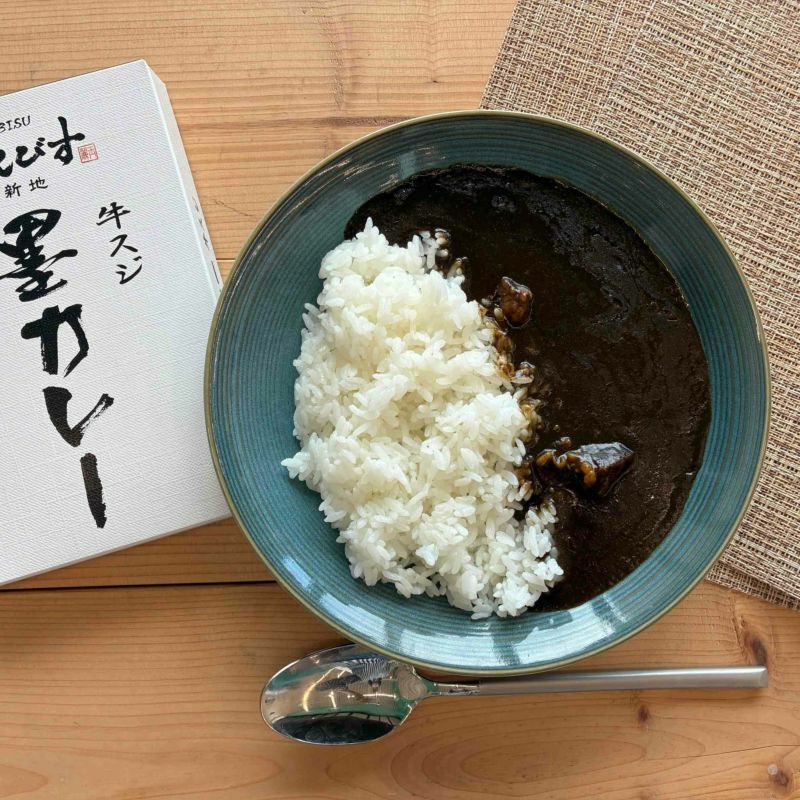 BISU
びす
新地
牛スジ
墨カレー